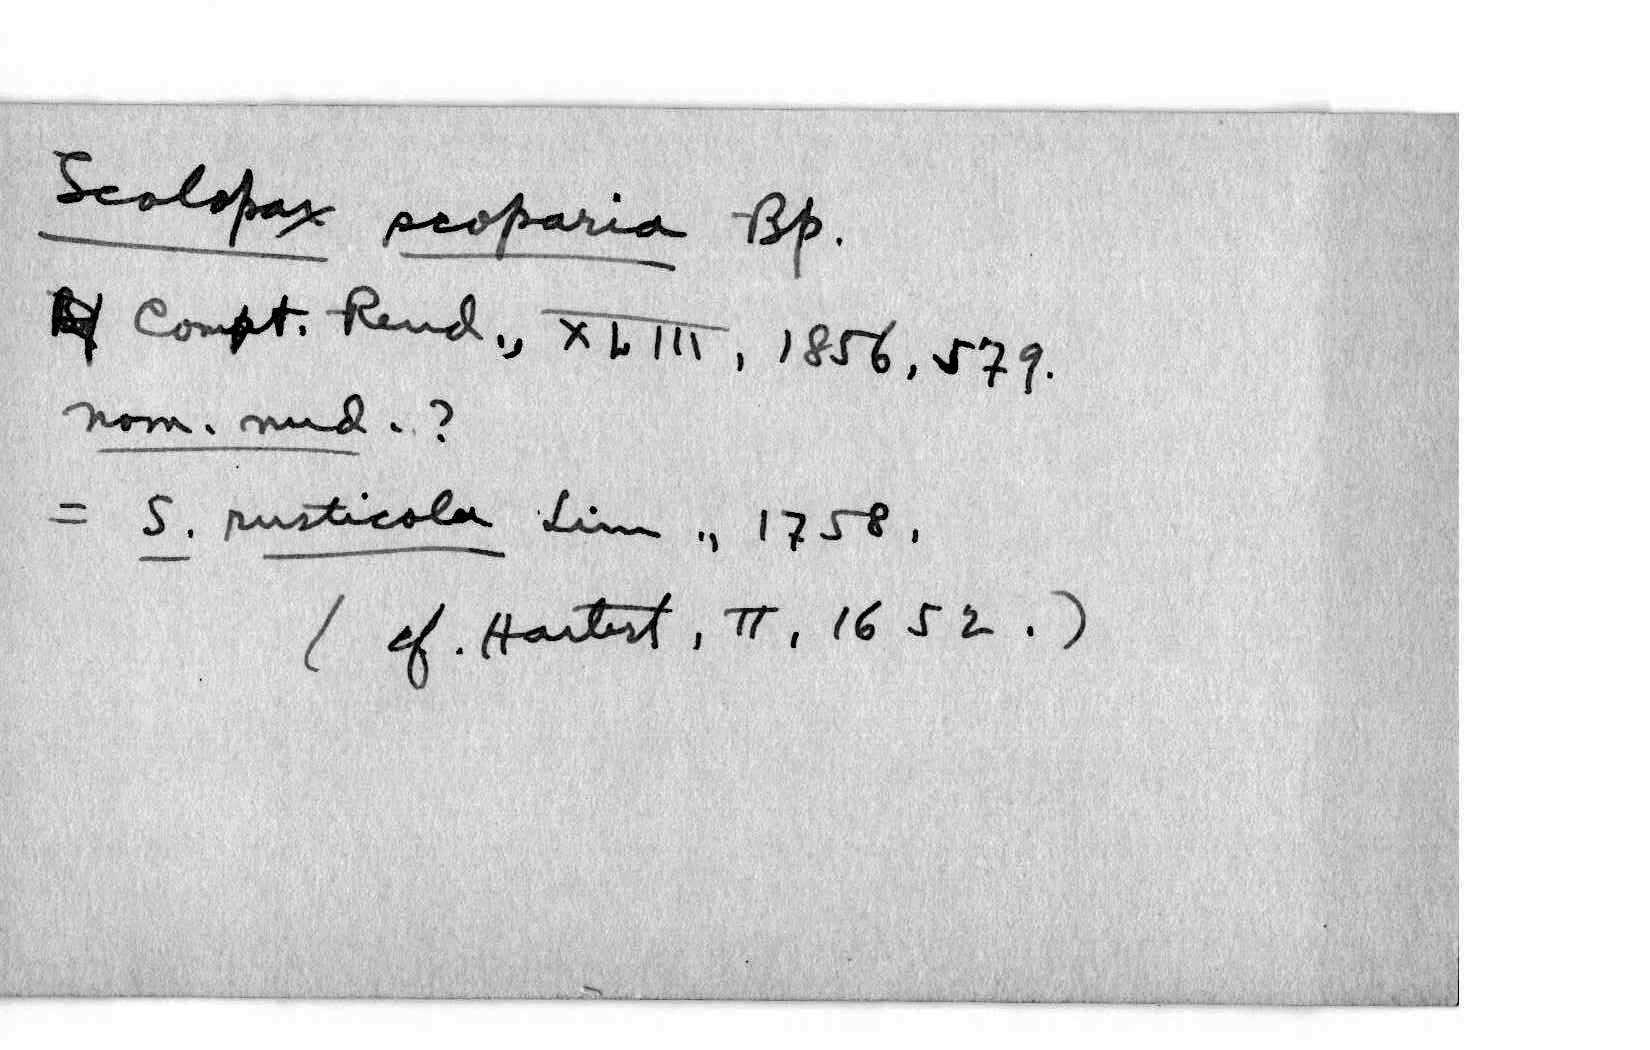 Scolopax scoparia Bp.
Compt. Rend., XLIII, 1856, 579.
nom. nud. ?
= S. rusticola Linn., 1758.
( cf. Hartert, II, 1652. )